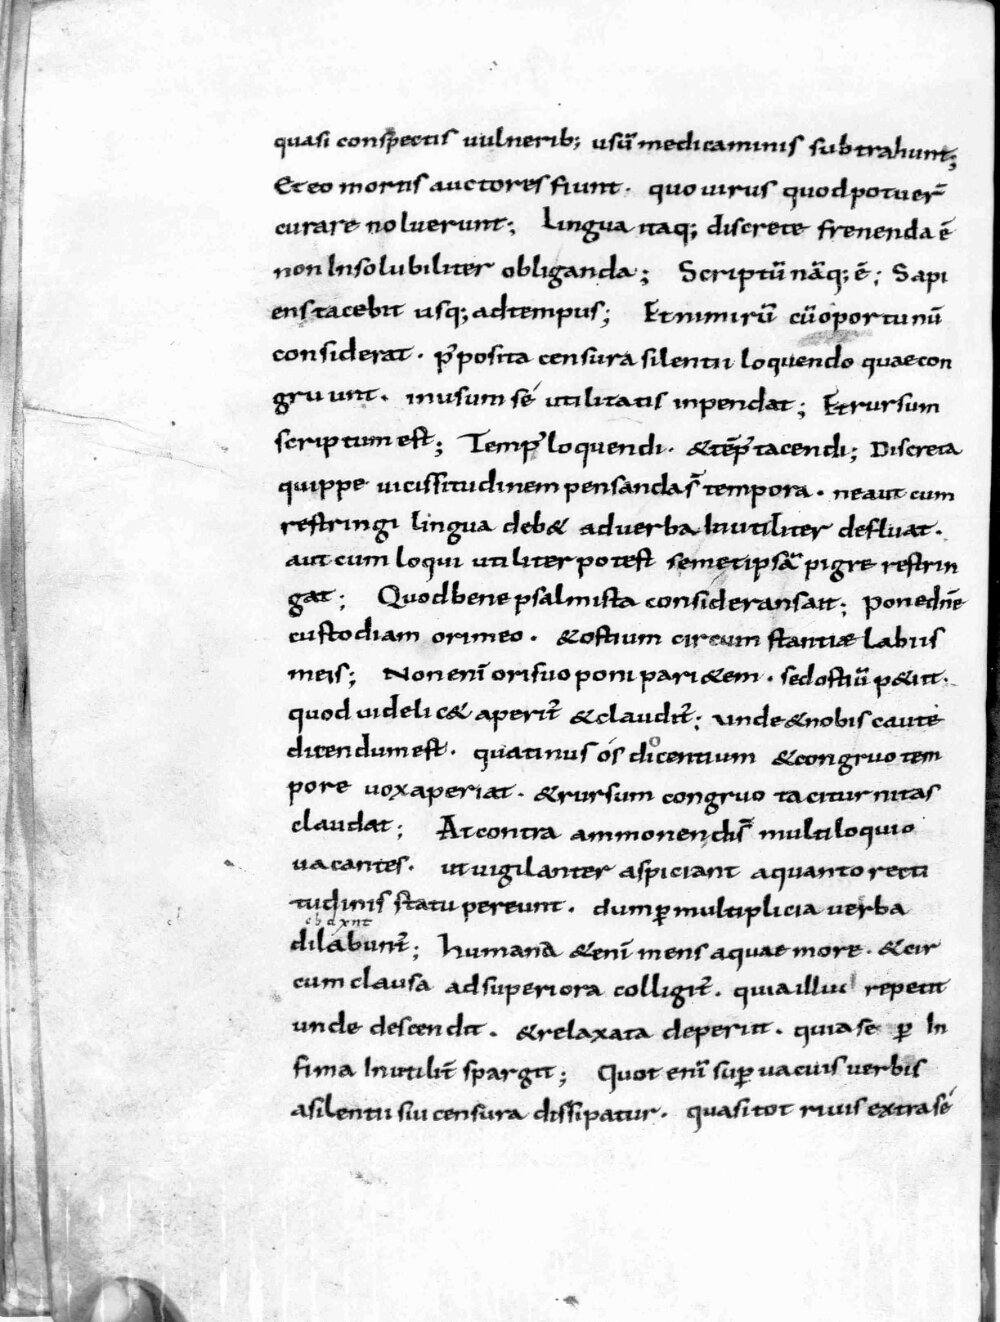 quasi conspectis uulnerib; usū medicaminis subtrahunt;
Et eo mortis auctores fiunt· quo uirus quod potuer̄
curare noluerunt; Lingua itaq; discrete frenenda ē
non Insolubiliter obliganda; Scriptū nāq; ē; Sapi
ens tacebit usq; ad tempus; Et nimirū cū oportunū
considerat· p̄posita censura silentii loquendo quae con
gruunt· in usum sé utilitatis inpendat; Et rursum
scriptum est; Temp' loquendi· & tēp' tacendi; Discreta
quippe uicissitudinem pensanda s̄ tempora· ne aut cum
restringi lingua deb& ad uerba Inutiliter defluat·
aut cum loqui utiliter potest semetipsā pigre restrin
gat; Quod bene psalmista considerans ait; Pone dn̄e
custodiam ori meo· & ostium circum stantiæ labiis
meis; Non enī ori suo poni pari&em· sed ostiū p&iit·
quod uidelic& aperit̄ & claudit̄; unde & nobis caute
dicendum est· quatinus ós dicentium & congruo tem
pore uox aperiat· & rursum congruo taciturnitas
claudat; At contra ammonendi s̄ multiloquio
uacantes· ut uigilanter aspiciant a quanto recti
tudinis statu pereunt· dum p̱ multiplicia uerba
dilabunt̄; humana &enī mens aquae more· & cir
cum clausa ad superiora colligit̄· quia illuc repetit
unde descendit· & relaxata deperit· quia se p̱ In
fima Inutilit̄ spargit; Quot enī sup̱uacuis uerbis
a silentii sui censura dissipatur· quasi tot riuis extra sé